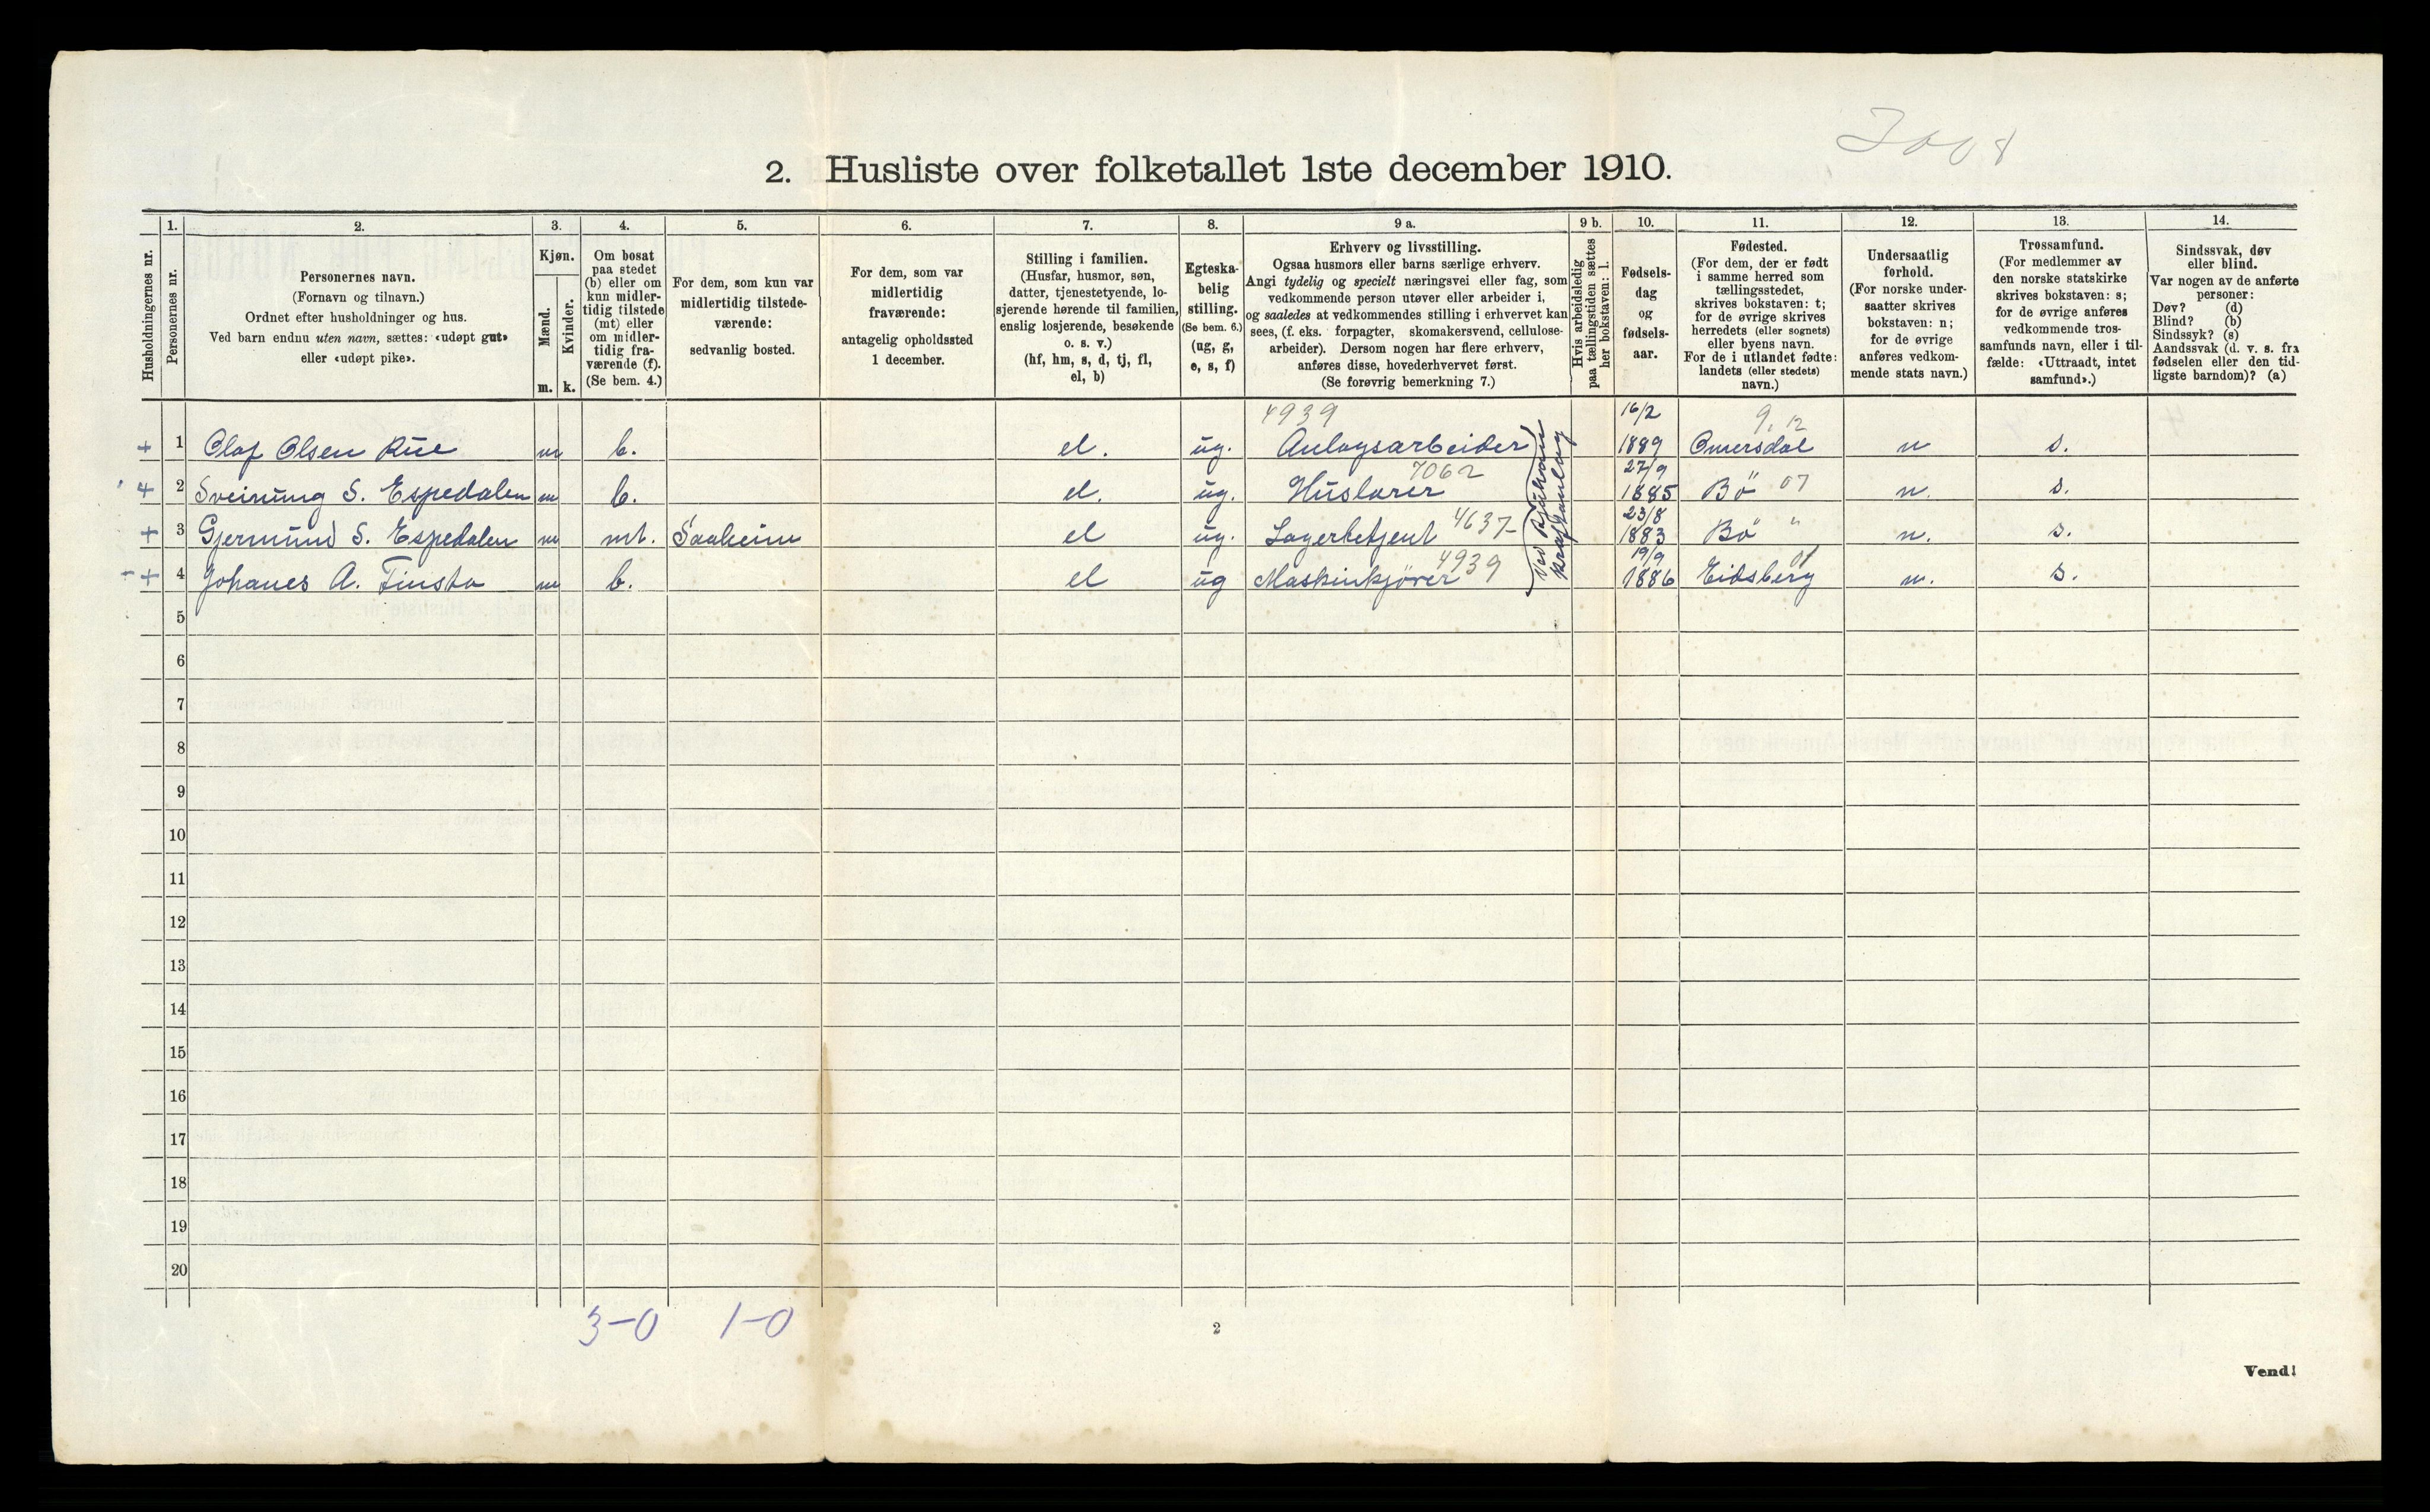 2. Husliste over folketallet 1ste december 1910.
1. 2. 3. 4. 5. 6. 7. 8. 9 a. 9 b. 10. 11. 12. 13. 14.
Husholdningernes nr.
Personernes nr.
Personernes navn.
(Fornavn og tilnavn.)
Ordnet efter husholdninger og hus.
Ved barn endnu uten navn, sættes: «udøpt gut»
eller «udøpt pike».
Kjøn.
Mænd.
Kvinder.
m. k.
Om bosat
paa stedet
(b) eller om
kun midler-
tidig tilstede
(mt) eller
om midler-
tidig fra-
værende (f).
(Se bem. 4.)
For dem, som kun var
midlertidig tilstede-
værende:
sedvanlig bosted.
For dem, som var
midlertidig
fraværende:
antagelig opholdssted
1 december.
Stilling i familien.
(Husfar, husmor, søn,
datter, tjenestetyende, lo-
sjerende hørende til familien,
enslig losjerende, besøkende
o. s. v.)
(hf, hm, s, d, tj, fl,
el, b)
Egteska-
belig
stilling.
(Se bem. 6.)
(ug, g,
e, s, f)
Erhverv og livsstilling.
Ogsaa husmors eller barns særlige erhverv.
Angi tydelig og specielt næringsvei eller fag, som
vedkommende person utøver eller arbeider i,
og saaledes at vedkommendes stilling i erhvervet kan
sees, (f. eks. forpagter, skomakersvend, cellulose-
arbeider). Dersom nogen har flere erhverv,
anføres disse, hovederhvervet først.
(Se forøvrig bemerkning 7.)
Hvis arbeidsledig
paa tællingstiden sættes
her bokstaven: l.
Fødsels-
dag
og
fødsels-
aar.
Fødested.
(For dem, der er født
i samme herred som
tællingsstedet,
skrives bokstaven: t;
for de øvrige skrives
herredets (eller sognets)
eller byens navn.
For de i utlandet fødte:
landets (eller stedets)
navn.)
Undersaatlig
forhold.
(For norske under-
saatter skrives
bokstaven: n;
for de øvrige
anføres vedkom-
mende stats navn.)
Trossamfund.
(For medlemmer av
den norske statskirke
skrives bokstaven: s;
for de øvrige anføres
vedkommende tros-
samfunds navn, eller i til-
fælde: «Uttraadt, intet
samfund».)
Sindssvak, døv
eller blind.
Var nogen av de anførte
personer:
Døv? (d)
Blind? (b)
Sindssyk? (s)
Aandssvak (d. v. s. fra
fødselen eller den tid-
ligste barndom)? (a)
4939 16/2 9. 12
+ 1 Olaf Olsen Rue m b. el. ug. Anlægsarbeider 1889 Omersdal n s.
7062 27/9
+ 2 Sveinung S. Espedalen m b. el. ug. Huslærer 1885 Bö 07 n. s.
23/8
+ 3 Gjermund S. Espedalen m mt. Saaheim el ug. Lagerbetjent 4637- 1883 Bö " n. s.
4939 19/9 01
+ 4 Johanes A. Finsta m b. el ug Maskinkjører 1886 Eidsberg n. s.
Ved Rjukan
kraftanlæg
5
6
7
8
9
10
11
12
13
14
15
16
17
18
19
20
3-0 1-0
2
Vend!